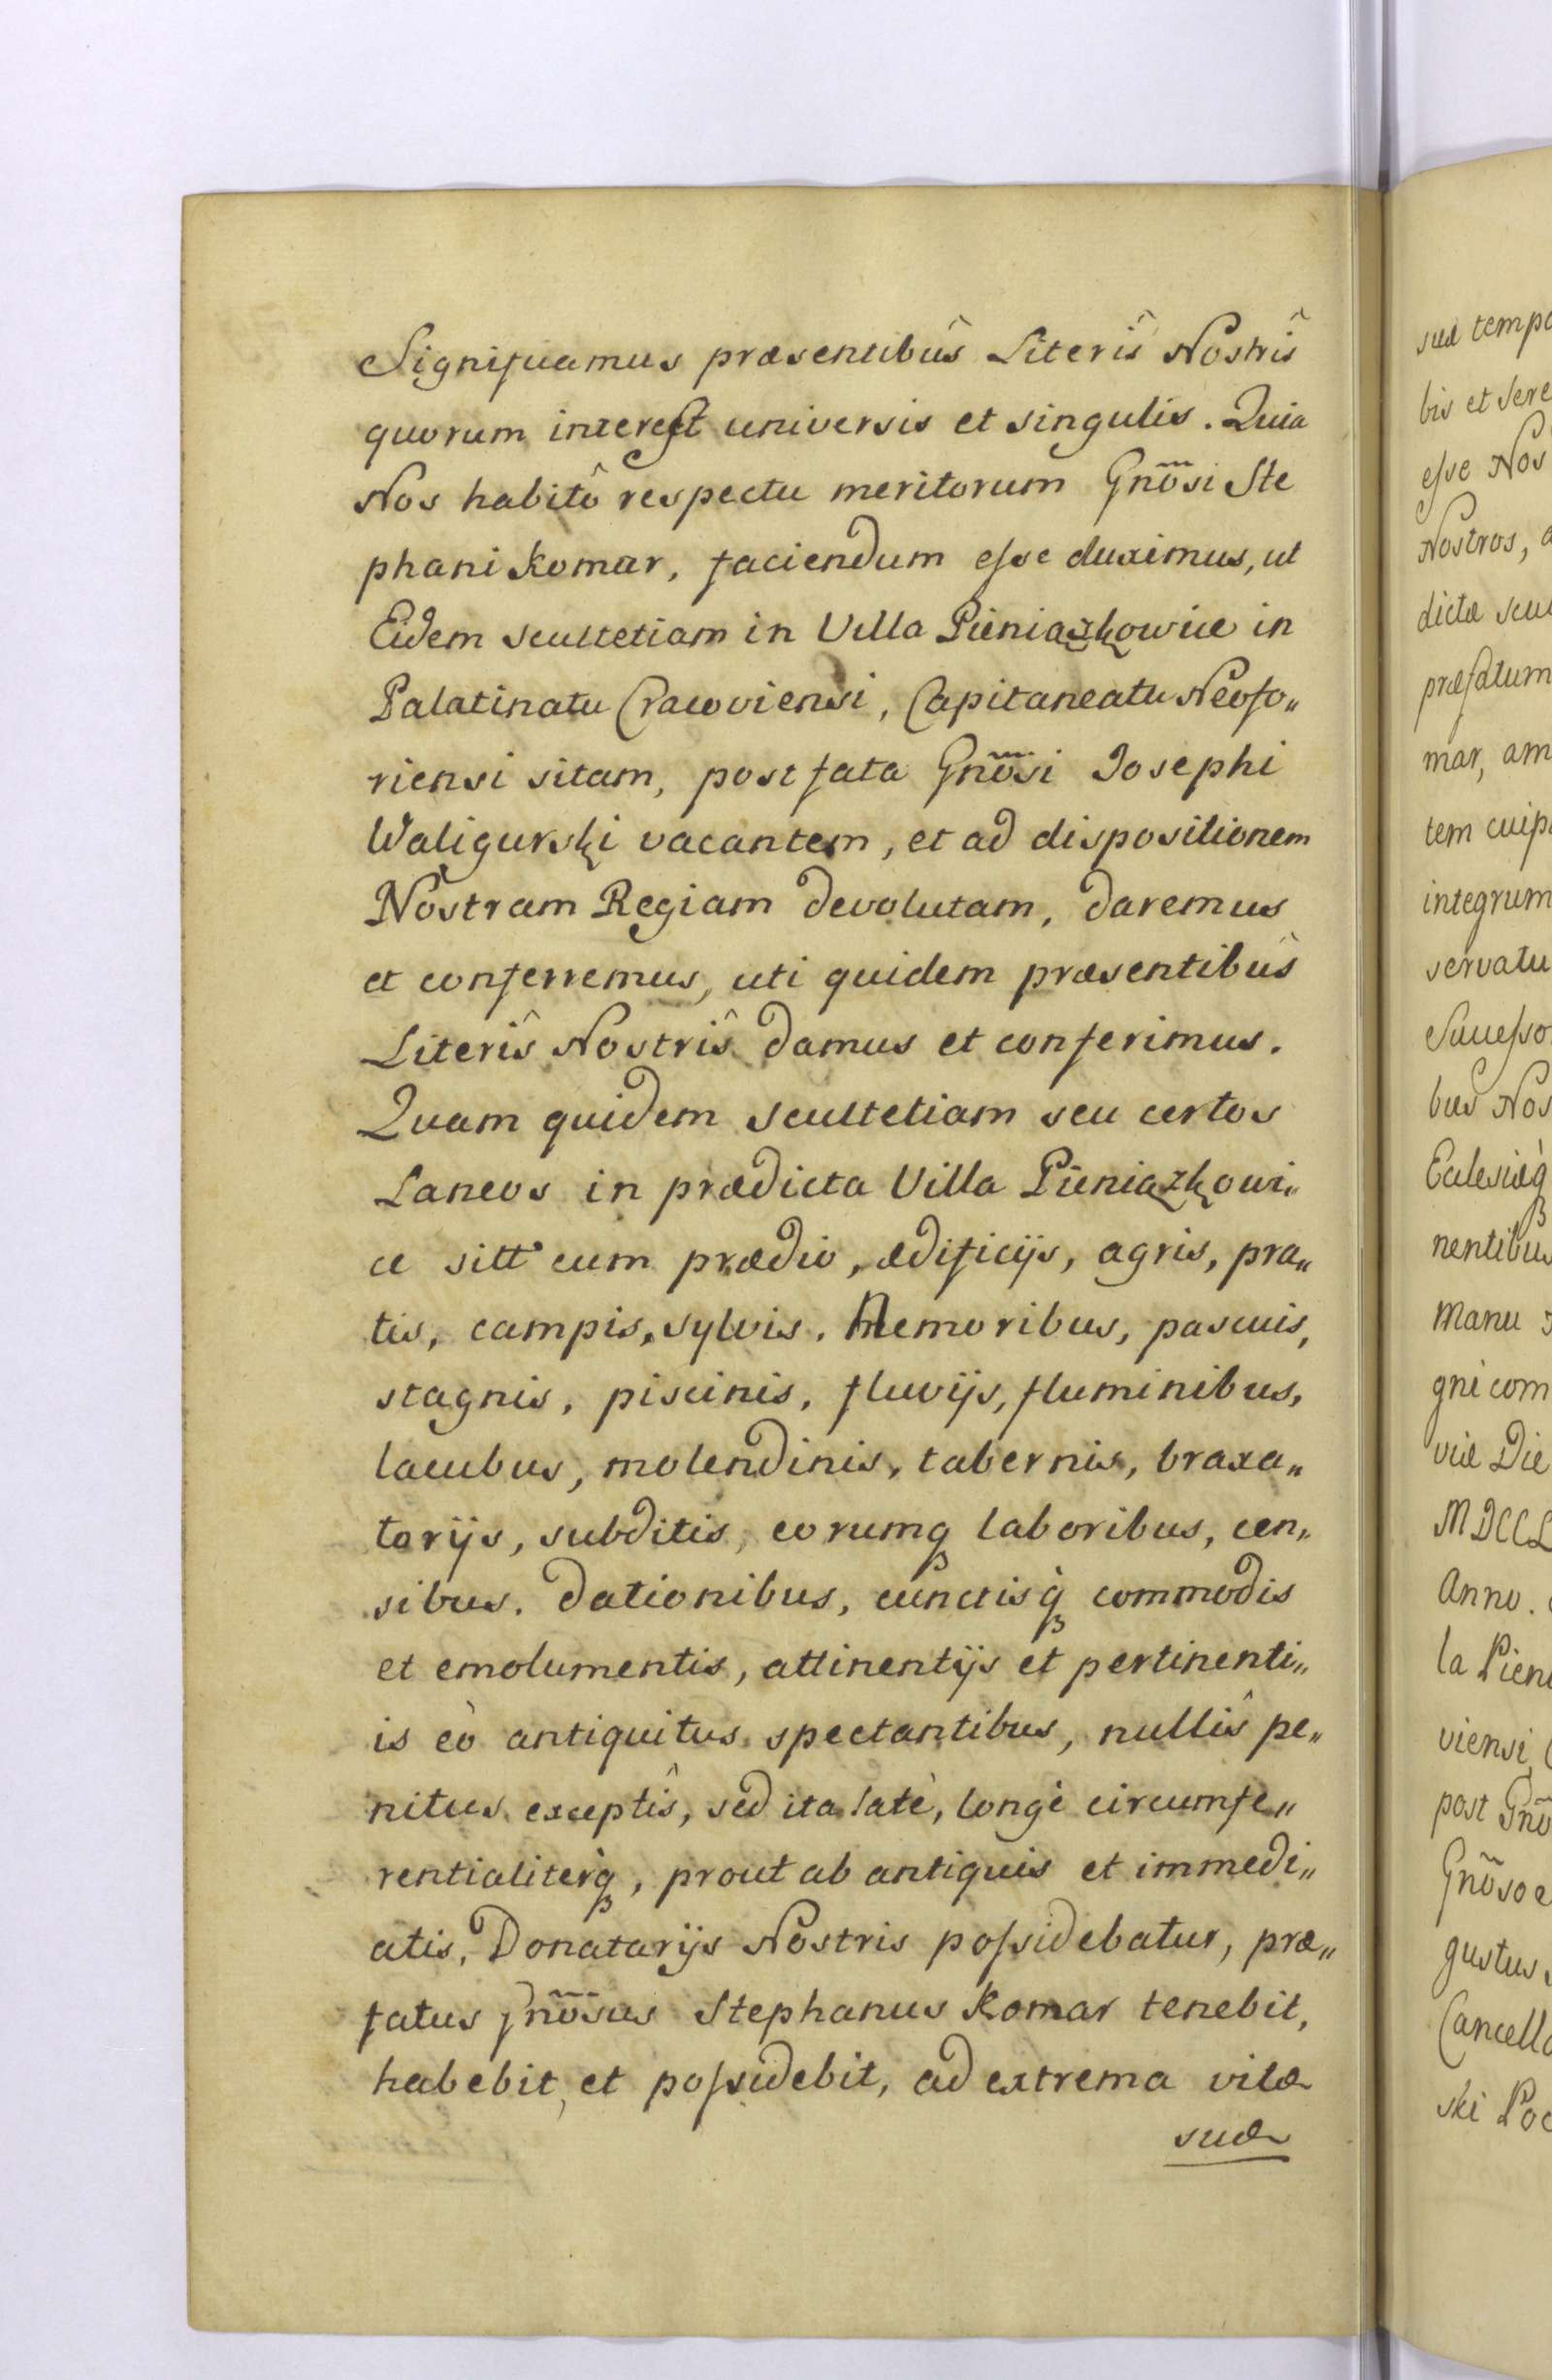 Significamus præsentibûs Literîs Nostrîs
quorum interest universis et singulis. Quia
Nos habitô respectu meritorum Gnõsi Ste
phani Komar, faciendum esse duximus, ut
Eidem scultetiam in Villa Pieniążkowice in
Palatinatu Cracoviensi, Capitaneatu Neofo„
riensi sitam, post fata Gnõsi Josephi
Waligurski vacantem, et ad dispositionem
Nostram Regiam devolutam, daremus
et conferremus, uti quidem præsentibûs
Literîs Nostrîs damus et conferimus.
Quam quidem scultetiam seu certos
Laneos in prædicta Villa Pieniążkowi„
ce sitt cum prædio, ædificijs, agris, pra„
tis, campis, sylvis, Nemoribus, pascuis,
stagnis, piscinis, fluvijs, fluminibus,
lacubus, molendinis, tabernis, braxa„
torijs, subditis, eorumq laboribus, cen„
sibus, dationibus, cunctisq̀ commodis
et emolumentis, attinentijs et pertinenti„
is eò antiquitus spectantibus, nullîs pe„
nitus exceptîs, sed ita latè, longè circumfe„
rentialiterq̀, prout ab antiquis et immedi„
atis, Donatarijs Nostris possidebatur, præ„
fatus Gnõsus Stephanus Komar tenebit,
habebit, et possidebit, ad extrema vitæ
suæ
suæ tempo
bis et Sere
esse Nos
Nostros, a
dictæ scul
præfatum
mar, am
tem cuip
integrum
servatu
Successo
bus Nos
Eclesiæq̀
nentibus
Manu
gni com
viæ Die
MDCCL
Anno.
la Pieni
viensi, C
post Gnõ
Gnõso e
gustus
Cancella
ski Poc